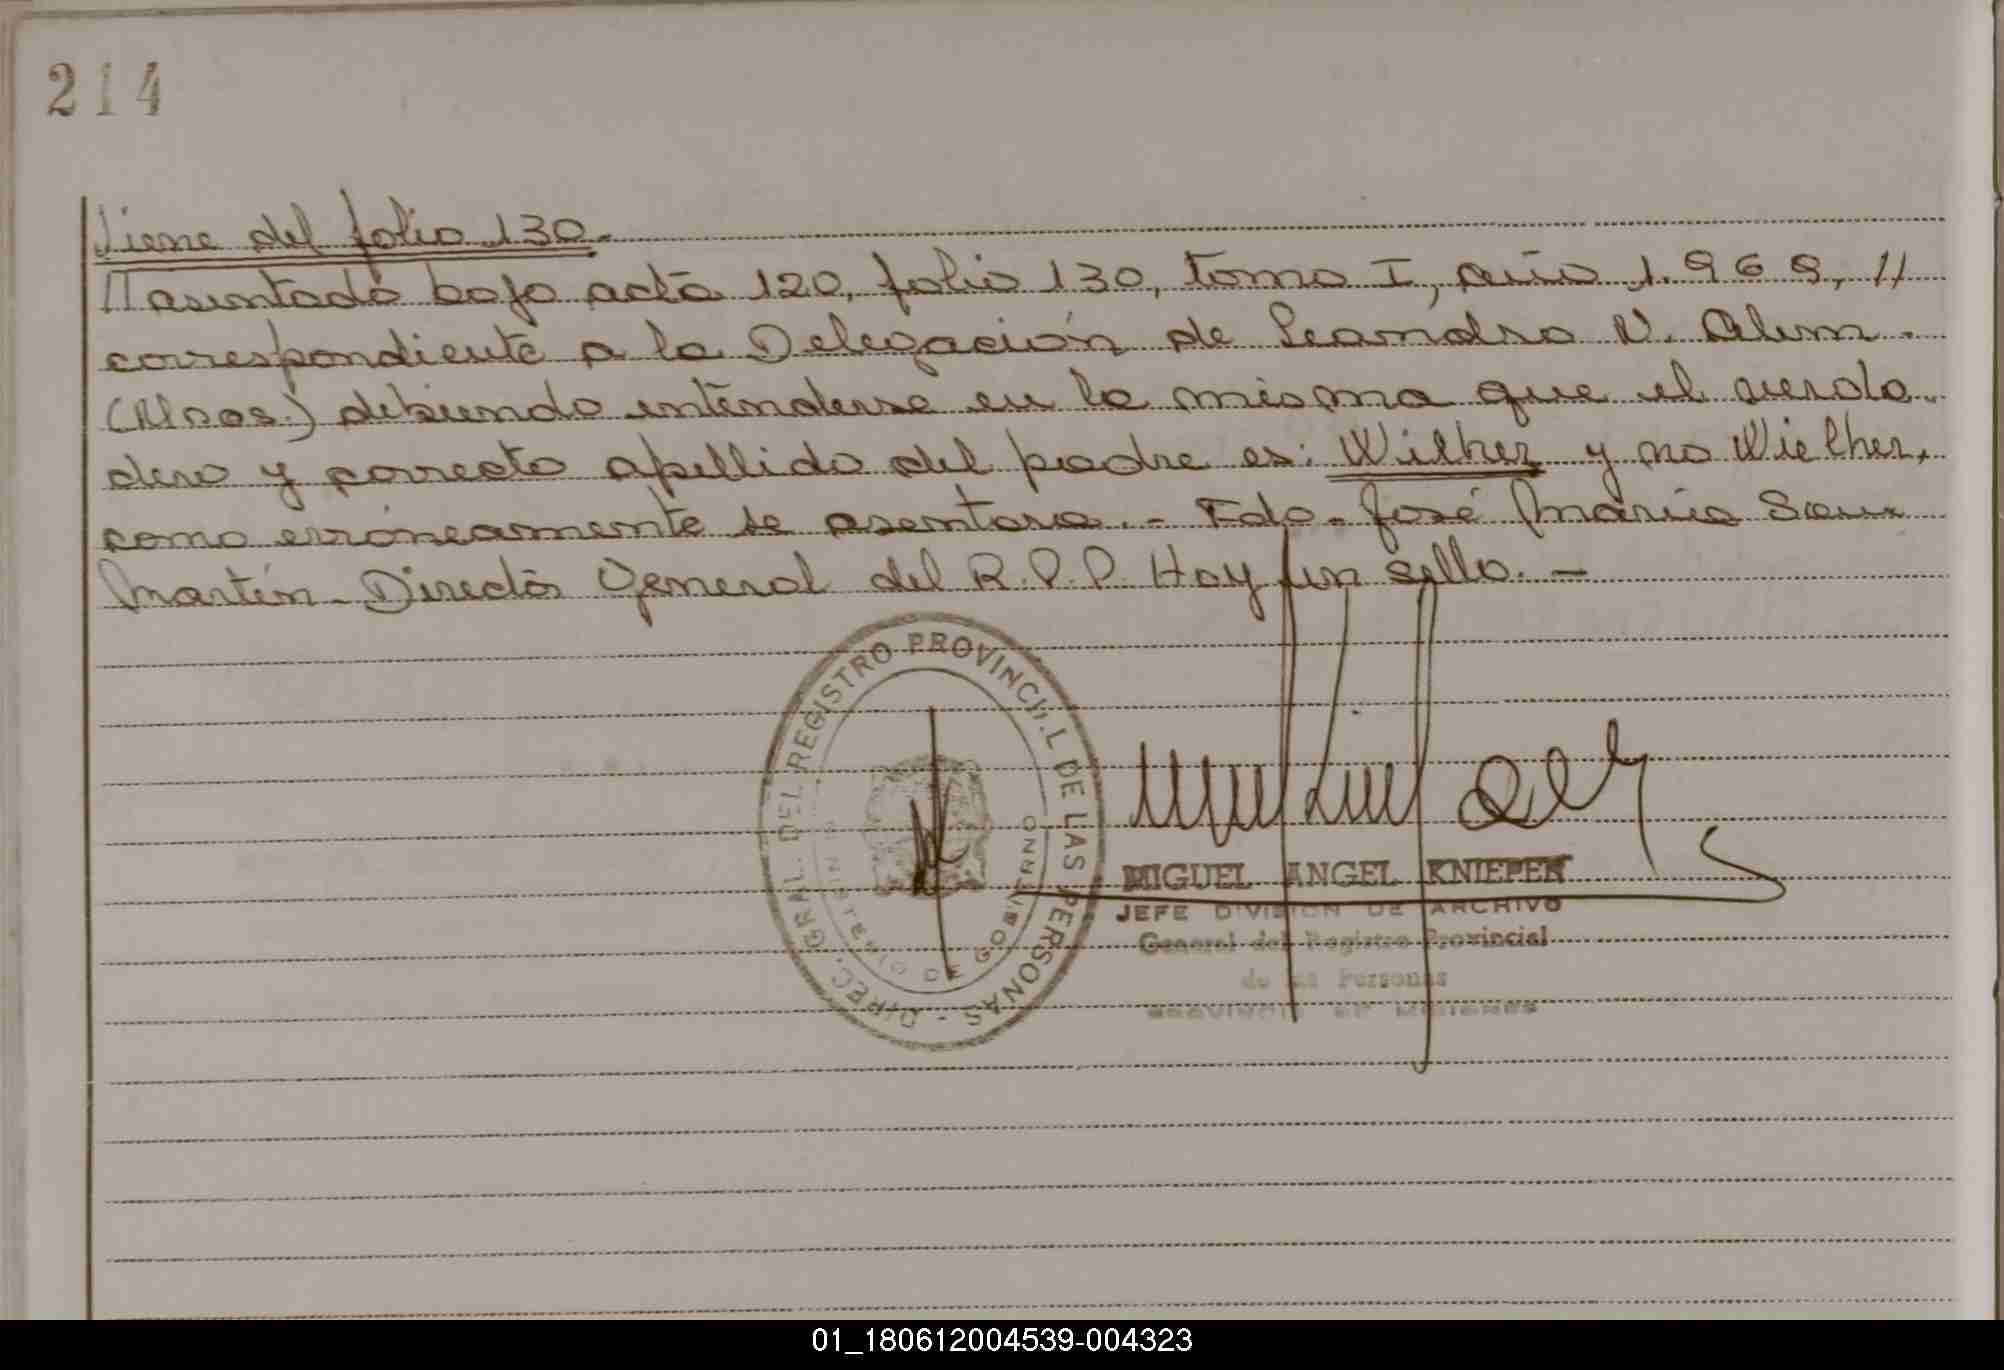 214
Viene del folio 130.-
// asentado bajo acta 120, folio 130, tomo I, año 1.969, //
correspondiente a la Delegación de Leandro N. Alem.
(Mnes.) debiendo entenderse en la misma que el verda-
dero y correcto apellido del padre es: Wilher y no Wielher,
como erróneamente se asentara.- Fdo. José María San
Martín - Director General del R.P.P. Hay un sello.-
DIREC. GRAL. DEL REGISTRO PROVINCIAL DE LAS PERSONAS -
MINISTERIO DE GOBIERNO
MIGUEL ANGEL KNIEPEN
JEFE DIVISION DE ARCHIVO
General del Registro Provincial
de las Personas
PROVINCIA DE MISIONES
01_180612004539-004323